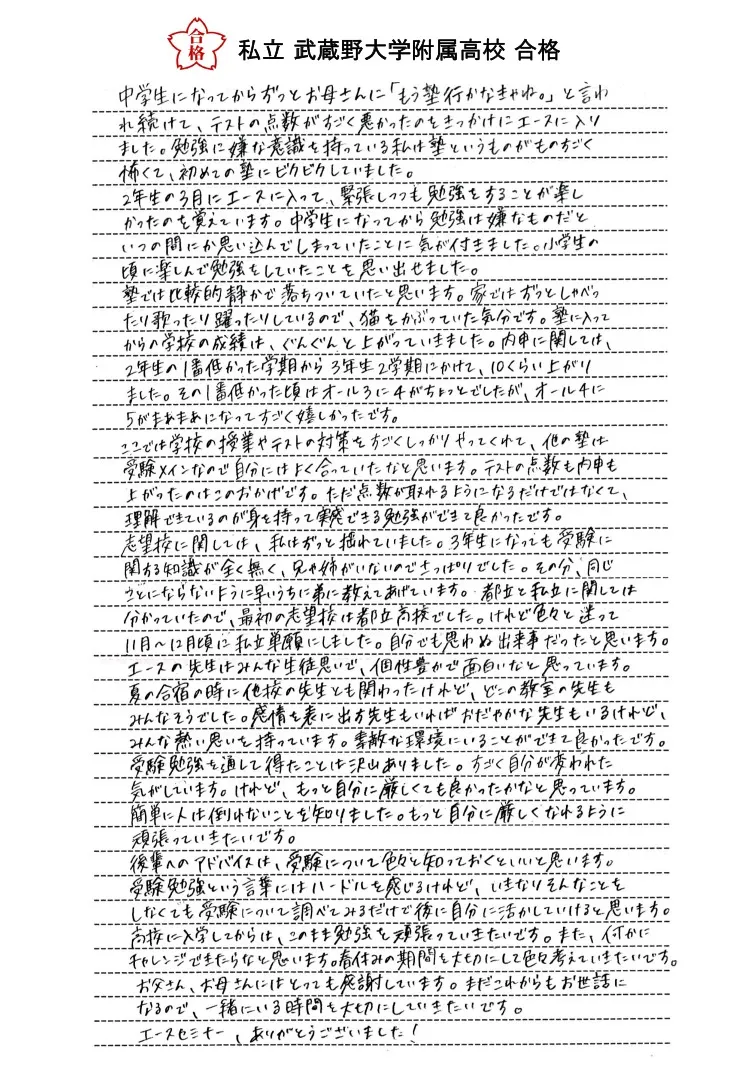 合格
私立 武蔵野大学附属高校 合格
中学生になってからずっとお母さんに「もう塾行かなきゃね。」と言わ
れ続けて、テストの点数がすごく悪かったのをきっかけにエースに入り
ました。勉強に嫌な意識を持っている私は塾というものがものすごく
怖くて、初めての塾にビクビクしていました。
2年生の3月にエースに入って、緊張しつつも勉強をすることが楽し
かったのを覚えています。中学生になってから勉強は嫌なものだと
いつの間にか思い込んでしまっていたことに気が付きました。小学生の
頃に楽しんで勉強をしていたことを思い出せました。
塾では比較的静かで落ちついていたと思います。家ではずっとしゃべっ
たり歌ったり躍ったりしているので、猫をかぶっていた気分です。塾に入って
からの学校の成績は、ぐんぐんと上がっていきました。内申に関しては、
2年生の1番低かった学期から3年生2学期にかけて、10くらい上がり
ました。その1番低かった頃はオール3に4がちょっとでしたが、オール4に
5がまあまあになってすごく嬉しかったです。
ここでは学校の授業やテストの対策をすごくしっかりやってくれて、他の塾は
受験メインなので自分にはよく合っていたなと思います。テストの点数も内申も
上がったのはこのおかげです。ただ点数が取れるようになるだけではなくて、
理解できているのが身を持って実感できる勉強ができて良かったです。
志望校に関しては、私はずっと揺れていました。3年生になっても受験に
関する知識が全く無く、兄や姉がいないのでさっぱりでした。その分、同じ
ことにならないように早いうちに弟に教えてあげています。都立と私立に関しては
分かっていたので、最初の志望校は都立高校でした。けれど色々と迷って
11月～12月頃に私立単願にしました。自分でも思わぬ出来事だったと思います。
エースの先生はみんな生徒思いで、個性豊かで面白いなと思っています。
夏の合宿の時に他校の先生とも関わったけれど、どこの教室の先生も
みんなそうでした。感情を表に出す先生もいればおだやかな先生もいるけれど、
みんな熱い思いを持っています。素敵な環境にいることができて良かったです。
受験勉強を通して得たことは沢山ありました。すごく自分が変われた
気がしています。けれど、もっと自分に厳しくても良かったかなと思っています。
簡単に人は倒れないことを知りました。もっと自分に厳しくなれるように
頑張っていきたいです。
後輩へのアドバイスは、受験について色々と知っておくといいと思います。
受験勉強という言葉にはハードルを感じるけれど、いきなりそんなことを
しなくても受験について調べてみるだけで後に自分に活かしていけると思います。
高校に入学してからは、このまま勉強を頑張っていきたいです。また、何かに
チャレンジできたらなと思います。春休みの期間を大切にして色々考えていきたいです。
お父さん、お母さんにはとっても感謝しています。まだこれからもお世話に
なるので、一緒にいる時間を大切にしていきたいです。
エースセミナー、ありがとうございました!